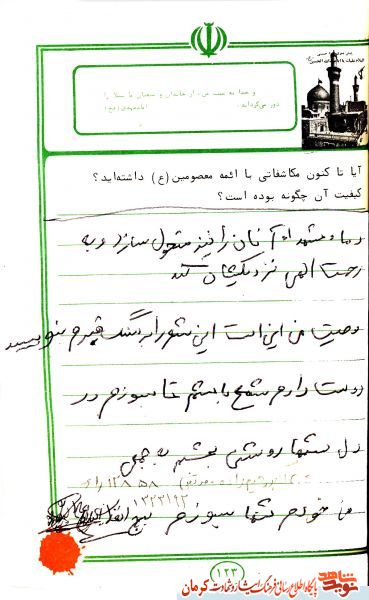 و خدا به سبب من، از خاندان و شیعیان ما بلا را
دور می‌گرداند.
امام مهدی (عج)
آیا تا کنون مکاشفاتی با ائمه معصومین (ع) داشته‌اید؟
کیفیت آن چگونه بوده است؟
آنان را نیز متحول سازد و به
رحمت الهی نزدیکشان کند
وصیت من این است این شعر را به سنگ قبرم بنویسید
دوست دارم شمع باشم تا بسوزم در
دل شبها روشنی بخشم به جمعی
خودم تنها بسوزم
۱۲۳
نوید شاهد
پایگاه اطلاع رسانی فرهنگ ایثار و شهادت کرمان